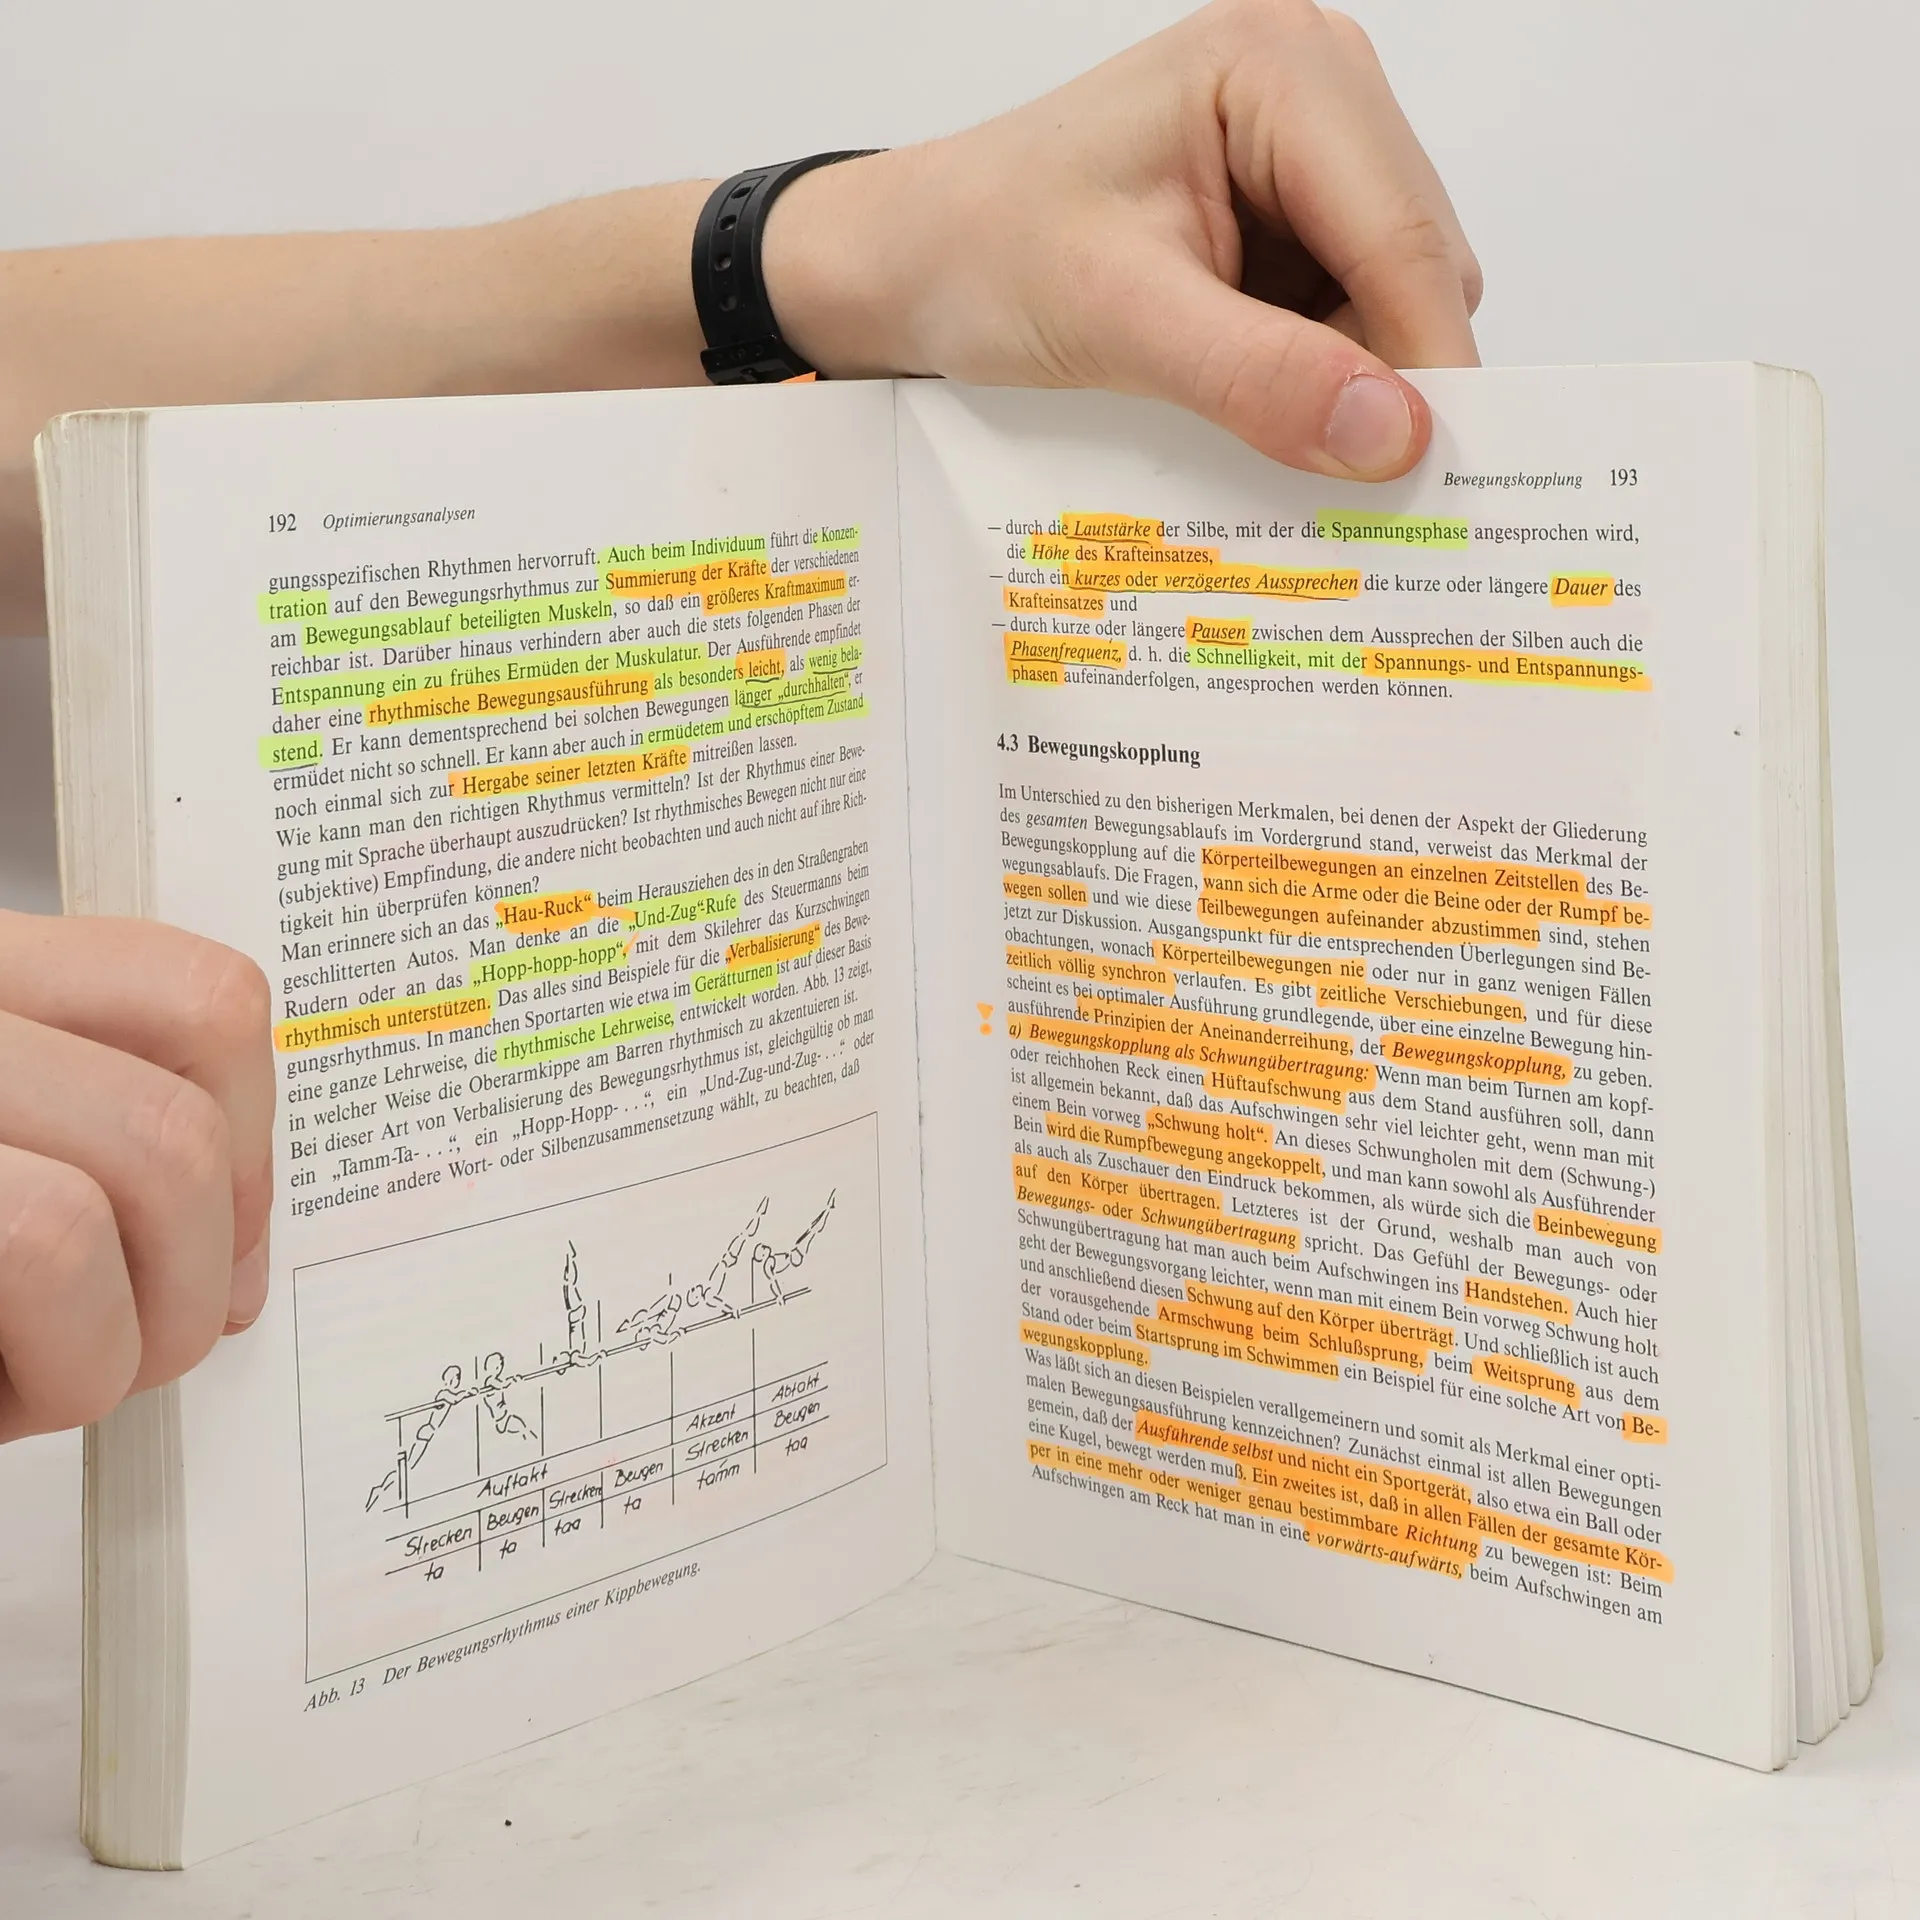 192 Optimierungsanalysen
gungsspezifischen Rhythmen hervorruft. Auch beim Individuum führt die Konzen-
tration auf den Bewegungsrhythmus zur Summierung der Kräfte der verschiedenen
am Bewegungsablauf beteiligten Muskeln, so daß ein größeres Kraftmaximum er-
reichbar ist. Darüber hinaus verhindern aber auch die stets folgenden Phasen der
Entspannung ein zu frühes Ermüden der Muskulatur. Der Ausführende empfindet
daher eine rhythmische Bewegungsausführung als besonders leicht, als wenig bela-
stend. Er kann dementsprechend bei solchen Bewegungen länger „durchhalten“, er
ermüdet nicht so schnell. Er kann aber auch in ermüdetem und erschöpftem Zustand
noch einmal sich zur Hergabe seiner letzten Kräfte mitreißen lassen.
Wie kann man den richtigen Rhythmus vermitteln? Ist der Rhythmus einer Bewe-
gung mit Sprache überhaupt auszudrücken? Ist rhythmisches Bewegen nicht nur eine
(subjektive) Empfindung, die andere nicht beobachten und auch nicht auf ihre Rich-
tigkeit hin überprüfen können?
Man erinnere sich an das „Hau-Ruck“ beim Herausziehen des in den Straßengraben
geschlitterten Autos. Man denke an die „Und-Zug“Rufe des Steuermanns beim
Rudern oder an das „Hopp-hopp-hopp“, mit dem Skilehrer das Kurzschwingen
rhythmisch unterstützen. Das alles sind Beispiele für die „Verbalisierung“ des Bewe-
gungsrhythmus. In manchen Sportarten wie etwa im Gerätturnen ist auf dieser Basis
eine ganze Lehrweise, die rhythmische Lehrweise, entwickelt worden. Abb. 13 zeigt,
in welcher Weise die Oberarmkippe am Barren rhythmisch zu akzentuieren ist.
Bei dieser Art von Verbalisierung des Bewegungsrhythmus ist, gleichgültig ob man
ein „Tamm-Ta- . . .“, ein „Hopp-Hopp- . . .“, ein „Und-Zug-und-Zug- . . .“ oder
irgendeine andere Wort- oder Silbenzusammensetzung wählt, zu beachten, daß
Auftakt Akzent Abtakt
Strecken Beugen Strecken Beugen Strecken Beugen
ta ta taa ta tamm taa
Abb. 13 Der Bewegungsrhythmus einer Kippbewegung.
Bewegungskopplung 193
– durch die Lautstärke der Silbe, mit der die Spannungsphase angesprochen wird,
die Höhe des Krafteinsatzes,
– durch ein kurzes oder verzögertes Aussprechen die kurze oder längere Dauer des
Krafteinsatzes und
– durch kurze oder längere Pausen zwischen dem Aussprechen der Silben auch die
Phasenfrequenz, d. h. die Schnelligkeit, mit der Spannungs- und Entspannungs-
phasen aufeinanderfolgen, angesprochen werden können.
4.3 Bewegungskopplung
Im Unterschied zu den bisherigen Merkmalen, bei denen der Aspekt der Gliederung
des gesamten Bewegungsablaufs im Vordergrund stand, verweist das Merkmal der
Bewegungskopplung auf die Körperteilbewegungen an einzelnen Zeitstellen des Be-
wegungsablaufs. Die Fragen, wann sich die Arme oder die Beine oder der Rumpf be-
wegen sollen und wie diese Teilbewegungen aufeinander abzustimmen sind, stehen
jetzt zur Diskussion. Ausgangspunkt für die entsprechenden Überlegungen sind Be-
obachtungen, wonach Körperteilbewegungen nie oder nur in ganz wenigen Fällen
zeitlich völlig synchron verlaufen. Es gibt zeitliche Verschiebungen, und für diese
scheint es bei optimaler Ausführung grundlegende, über eine einzelne Bewegung hin-
ausführende Prinzipien der Aneinanderreihung, der Bewegungskopplung, zu geben.
a) Bewegungskopplung als Schwungübertragung: Wenn man beim Turnen am kopf-
oder reichhohen Reck einen Hüftaufschwung aus dem Stand ausführen soll, dann
ist allgemein bekannt, daß das Aufschwingen sehr viel leichter geht, wenn man mit
einem Bein vorweg „Schwung holt“. An dieses Schwungholen mit dem (Schwung-)
Bein wird die Rumpfbewegung angekoppelt, und man kann sowohl als Ausführender
als auch als Zuschauer den Eindruck bekommen, als würde sich die Beinbewegung
auf den Körper übertragen. Letzteres ist der Grund, weshalb man auch von
Bewegungs- oder Schwungübertragung spricht. Das Gefühl der Bewegungs- oder
Schwungübertragung hat man auch beim Aufschwingen ins Handstehen. Auch hier
geht der Bewegungsvorgang leichter, wenn man mit einem Bein vorweg Schwung holt
und anschließend diesen Schwung auf den Körper überträgt. Und schließlich ist auch
der vorausgehende Armschwung beim Schlußsprung, beim Weitsprung aus dem
Stand oder beim Startsprung im Schwimmen ein Beispiel für eine solche Art von Be-
wegungskopplung.
Was läßt sich an diesen Beispielen verallgemeinern und somit als Merkmal einer opti-
malen Bewegungsausführung kennzeichnen? Zunächst einmal ist allen Bewegungen
gemein, daß der Ausführende selbst und nicht ein Sportgerät, also etwa ein Ball oder
eine Kugel, bewegt werden muß. Ein zweites ist, daß in allen Fällen der gesamte Kör-
per in eine mehr oder weniger genau bestimmbare Richtung zu bewegen ist: Beim
Aufschwingen am Reck hat man in eine vorwärts-aufwärts, beim Aufschwingen am